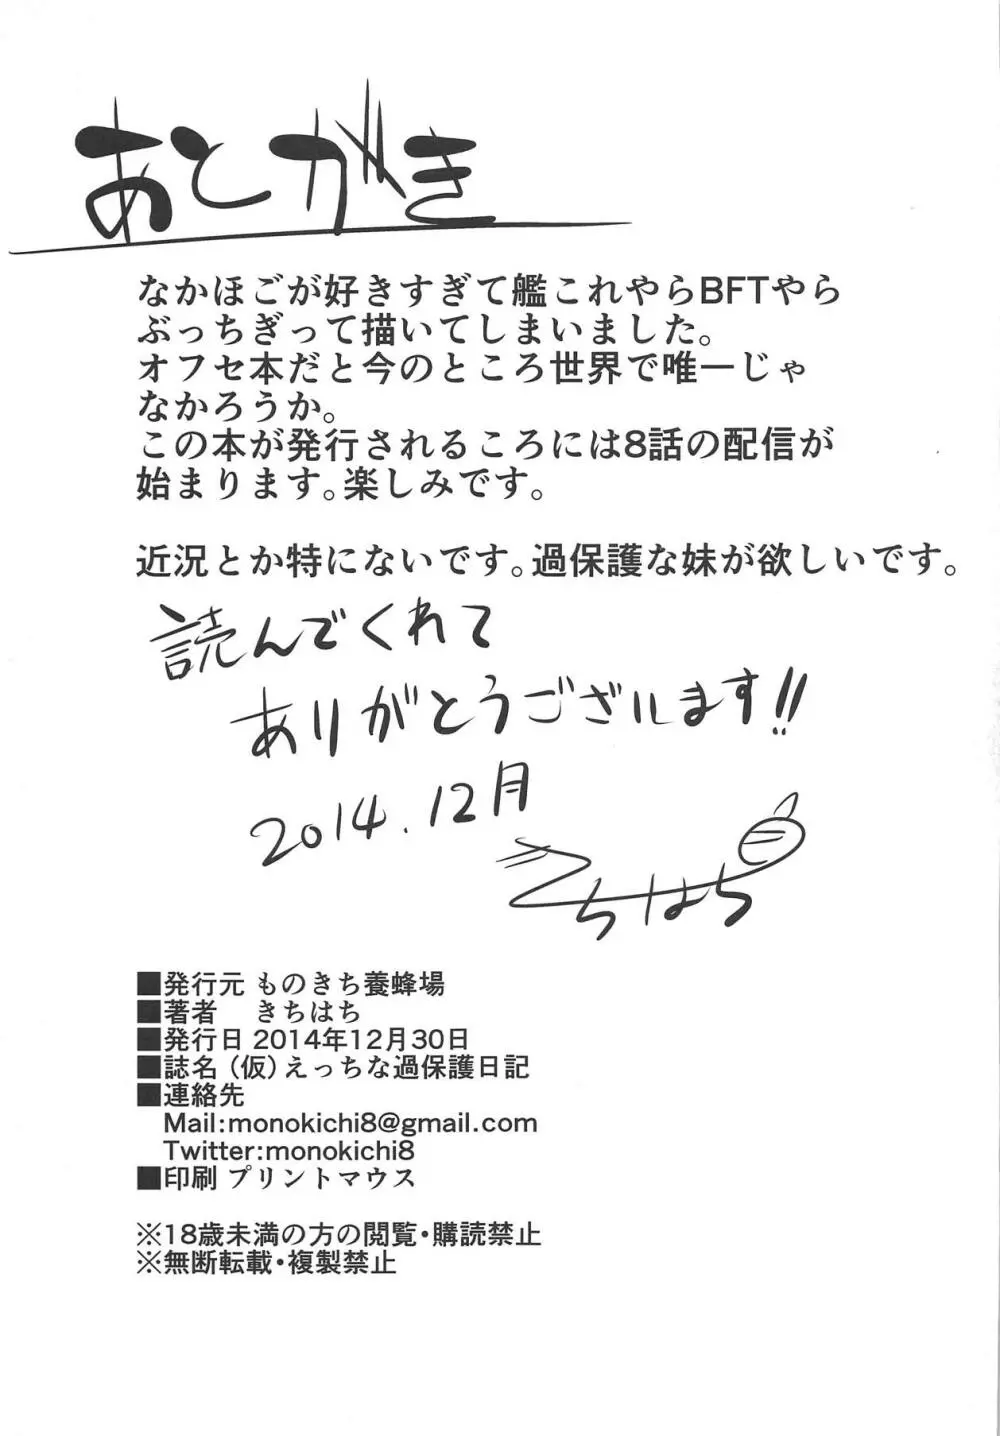 あとがき
なかほごが好きすぎて艦これやらBFTやら
ぶっちぎって描いてしまいました。
オフセ本だと今のところ世界で唯一じゃ
なかろうか。
この本が発行されるころには8話の配信が
始まります。楽しみです。
近況とか特にないです。過保護な妹が欲しいです。
読んでくれて
ありがとうございます!!
2014.12月
きちはち
■発行元 ものきち養蜂場
■著者 きちはち
■発行日 2014年12月30日
■誌名(仮)えっちな過保護日記
■連絡先
Mail:monokichi8@gmail.com
Twitter:monokichi8
■印刷 プリントマウス
※18歳未満の方の閲覧・購読禁止
※無断転載・複製禁止